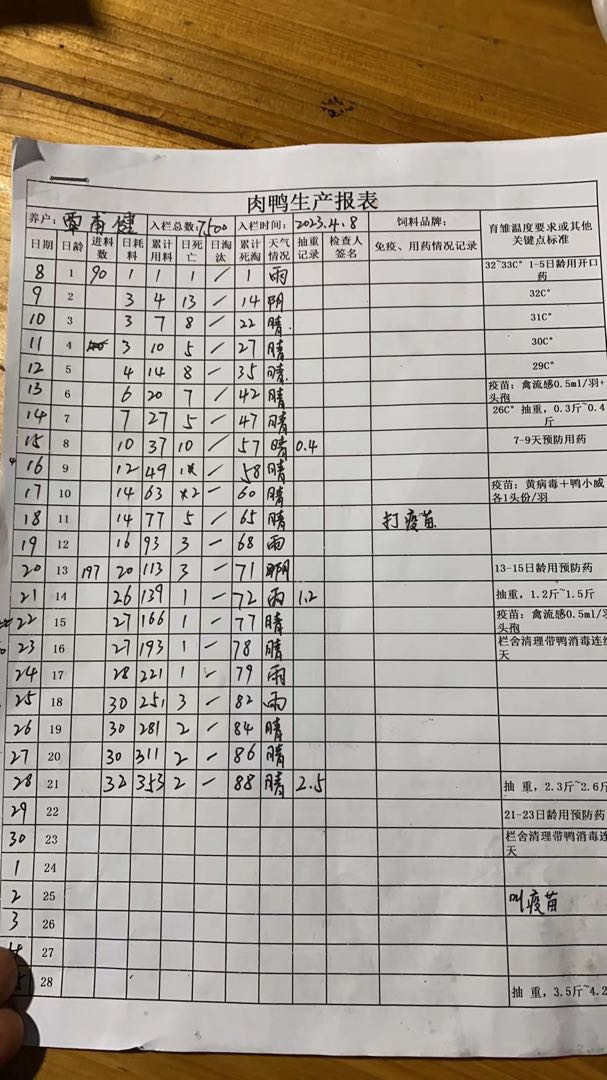 肉鸭生产报表
养户: 覃甫健 入栏总数:7,500 入栏时间: 2023.4.8 饲料品牌: 育雏温度要求或其他关键点标准
日期 日龄 进料数 日耗料 累计用料 日死亡 日淘汰 累计死淘 天气情况 抽重记录 检查人签名 免疫、用药情况记录
8 1 90 1 1 1 / 1 雨 32~33C° 1-5日龄用开口药
9 2 3 4 13 - 14 阴 32C°
10 3 3 7 8 - 22 晴 31C°
11 4 3 10 5 - 27 晴 30C°
12 5 4 14 8 - 35 晴 29C°
13 6 6 20 7 / 42 晴 疫苗: 禽流感0.5ml/羽+头孢
14 7 7 27 5 - 47 晴 26C° 抽重, 0.3斤~0.4斤
15 8 10 37 10 / 57 晴 0.4 7-9天预防用药
16 9 12 49 1 - 58 晴
17 10 14 63 2 - 60 晴 疫苗: 黄病毒+鸭小威各1头份/羽
18 11 14 77 5 / 65 晴 打疫苗
19 12 16 93 3 - 68 雨
20 13 197 20 113 3 - 71 阴 13-15日龄用预防药
21 14 26 139 1 - 72 雨 1.2 抽重, 1.2斤~1.5斤
22 15 27 166 1 - 77 晴 疫苗: 禽流感0.5ml/羽 头孢
23 16 27 193 1 - 78 晴 栏舍清理带鸭消毒连 天
24 17 28 221 1 - 79 雨
25 18 30 251 3 - 82 雨
26 19 30 281 2 - 84 晴
27 20 30 311 2 - 86 晴
28 21 32 353 2 - 88 晴 2.5 抽 重, 2.3斤~2.6斤
29 22 21-23日龄用预防药
30 23 栏舍清理带鸭消毒连 天
1 24
2 25 叫疫苗
3 26
4 27
5 28 抽 重, 3.5斤~4.2